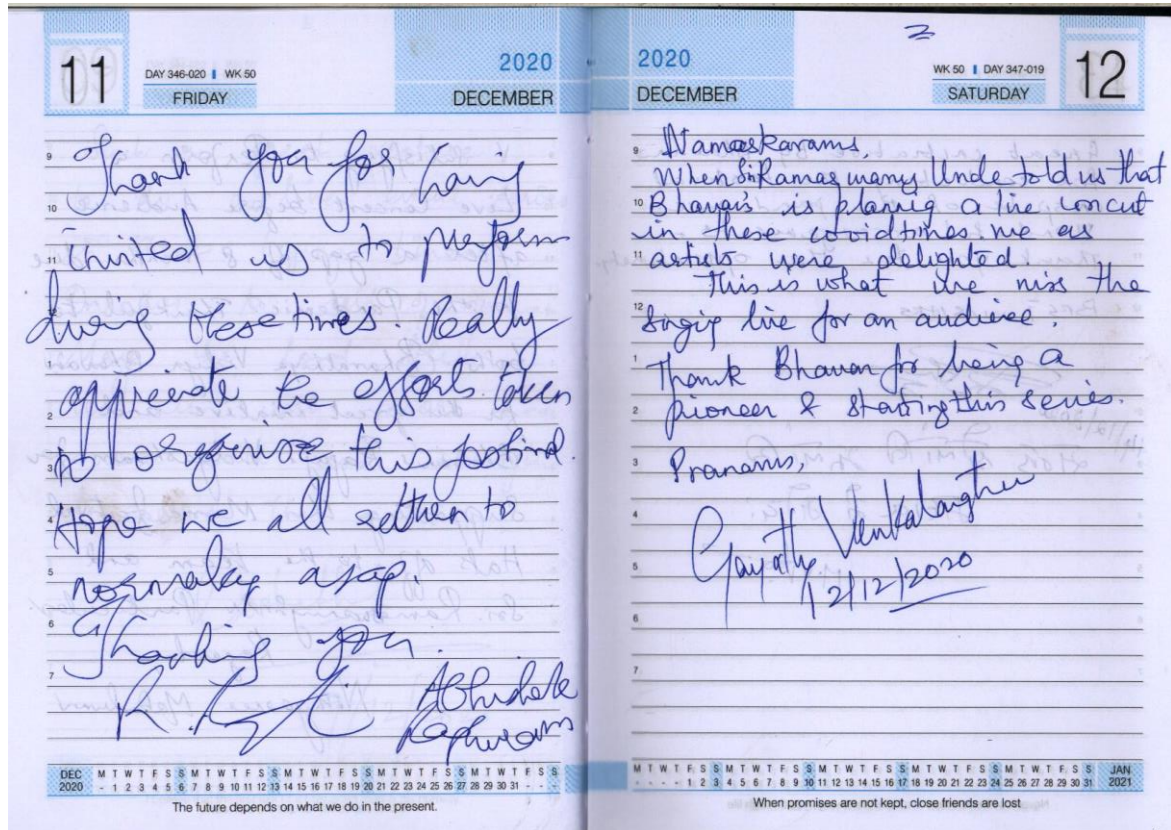 11
DAY 346-020 WK 50
FRIDAY
2020
DECEMBER
9 Thank you for having
10 invited us to perform
11 during these times. Really
appreciate the efforts taken
2 to organise this festival.
3 Hope we all return to
4
5 normalcy asap.
6 Thanking you.
7
Abhishek
Raghuram
DEC 2020
M T W T F S S M T W T F S S M T W T F S S M T W T F S S M T W T F S S
- 1 2 3 4 5 6 7 8 9 10 11 12 13 14 15 16 17 18 19 20 21 22 23 24 25 26 27 28 29 30 31 - - -
The future depends on what we do in the present.
2020
DECEMBER
WK 50 DAY 347-019
SATURDAY
12
9 Namaskarams,
When Sri Ramaswamy Uncle told us that
10 Bhavan's is planing a live concert
in these covid times, we as
11 artists were delighted.
This is what we miss the
12 singing live for an audience.
1 Thank Bhavan for being a
2 pioneer & starting this series.
3 Pranams,
4 Gayathri Venkataraghavan
5 12/12/2020
6
7
M T W T F S S M T W T F S S M T W T F S S M T W T F S S M T W T F S S
- - - - 1 2 3 4 5 6 7 8 9 10 11 12 13 14 15 16 17 18 19 20 21 22 23 24 25 26 27 28 29 30 31
JAN 2021
When promises are not kept, close friends are lost